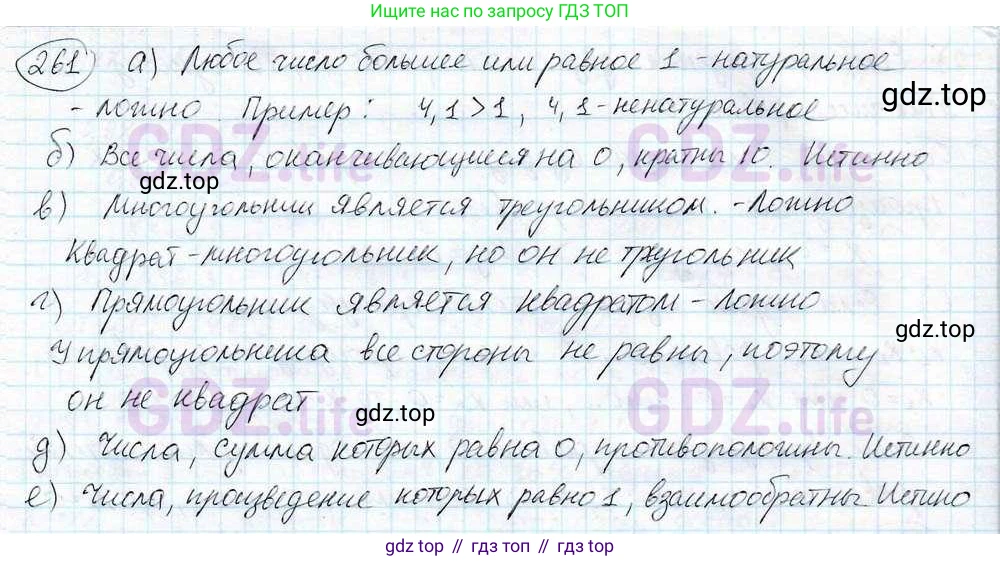 Ищите нас по запросу ГДЗ ТОП
261 а) Любое число большее или равное 1 - натуральное
- ложно Пример: 4,1 > 1, 4,1 - ненатуральное
gdz.top
б) Все числа, оканчивающиеся на 0, кратны 10. Истинно
gdz.top
в) Многоугольник является треугольником. - Ложно
Квадрат - многоугольник, но он не треугольник
г) Прямоугольник является квадратом - Ложно
gdz.top
У прямоугольника все стороны не равны, поэтому
он не квадрат
gdz.top
д) Числа, сумма которых равна 0, противоположны. Истинно
е) Числа, произведение которых равно 1, взаимообратны Истино
GDZ.life
GDZ.life
GDZ.life
GDZ.life
gdz top // гдз топ // gdz top